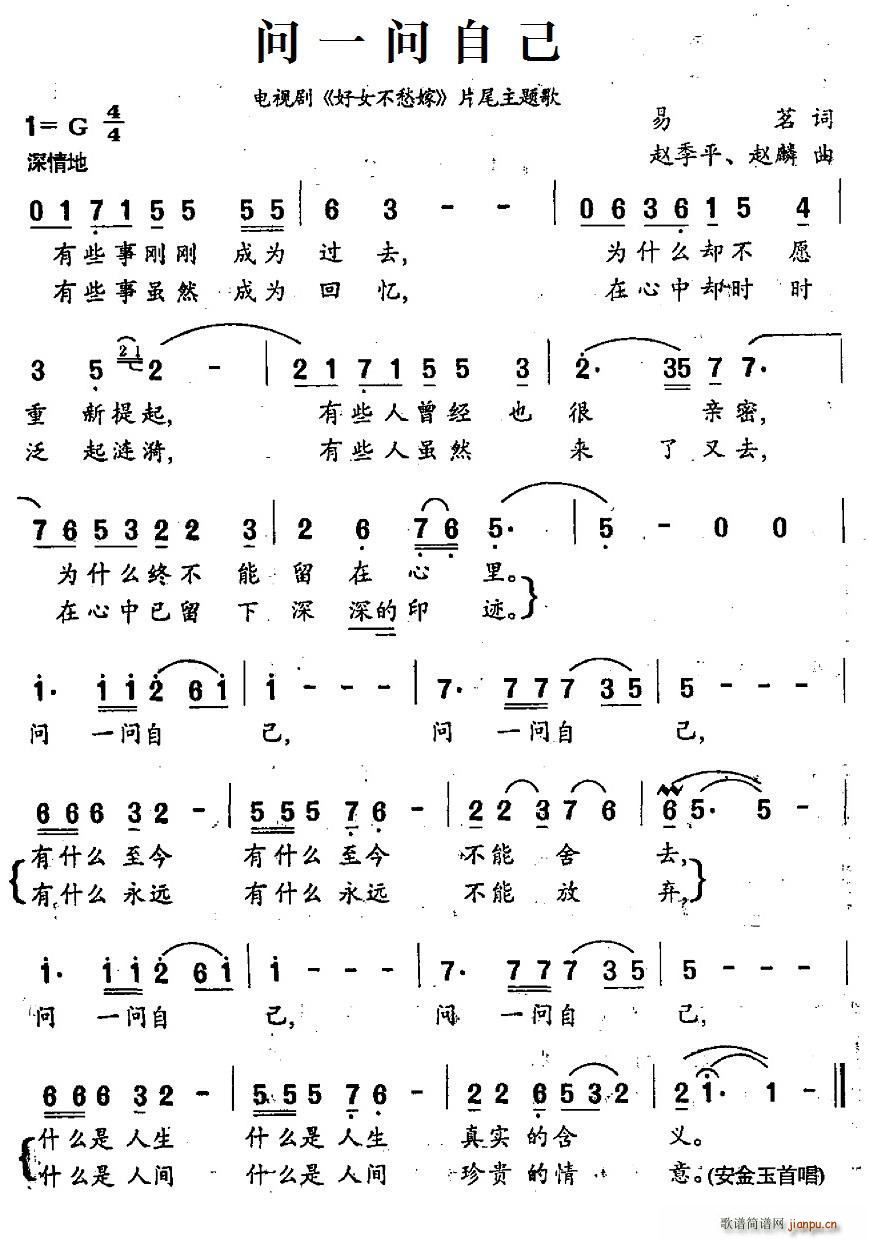 问一问自己
电视剧《好女不愁嫁》片尾主题歌
1= G 4/4
易 茗 词
深情地
赵季平、赵麟 曲
0 1 7 1 5 5 5 5 | 6 3 - - | 0 6 3 6 1 5 4 |
有些事刚刚 成为 过 去, 为什么却不 愿
有些事虽然 成为 回 忆, 在心中却时 时
3 5 2 1 2 - | 2 1 7 1 5 5 3 | 2· 3 5 7 7·
重 新提起, 有些人曾经 也 很 亲密,
泛 起涟漪, 有些人虽然 来 了又去,
7 6 5 3 2 2 3 | 2 6 7 6 5· | 5 - 0 0 |
为什么终不 能 留 在 心 里。
在心中已留 下 深 深的印 迹。
1· 1 1 2 6 1 | 1 - - - | 7· 7 7 7 3 5 | 5 - - - |
问 一问自 己, 问 一问自 己,
6 6 6 3 2 - | 5 5 5 7 6 - | 2 2 3 7 6 | 6 5· 5 - |
有什么 至今 有什么 至今 不能 舍 去,
有什么 永远 有什么 永远 不能 放 弃,
1· 1 1 2 6 1 | 1 - - - | 7· 7 7 7 3 5 | 5 - - - |
问 一问自 己, 问 一问自 己,
6 6 6 3 2 - | 5 5 5 7 6 - | 2 2 6 5 3 2 | 2 1· 1 - ‖
什么是 人生 什么是 人生 真实 的含 义。
什么是 人间 什么是 人间 珍贵 的情 意。(安金玉首唱)
歌谱简谱网 jianpu.cn